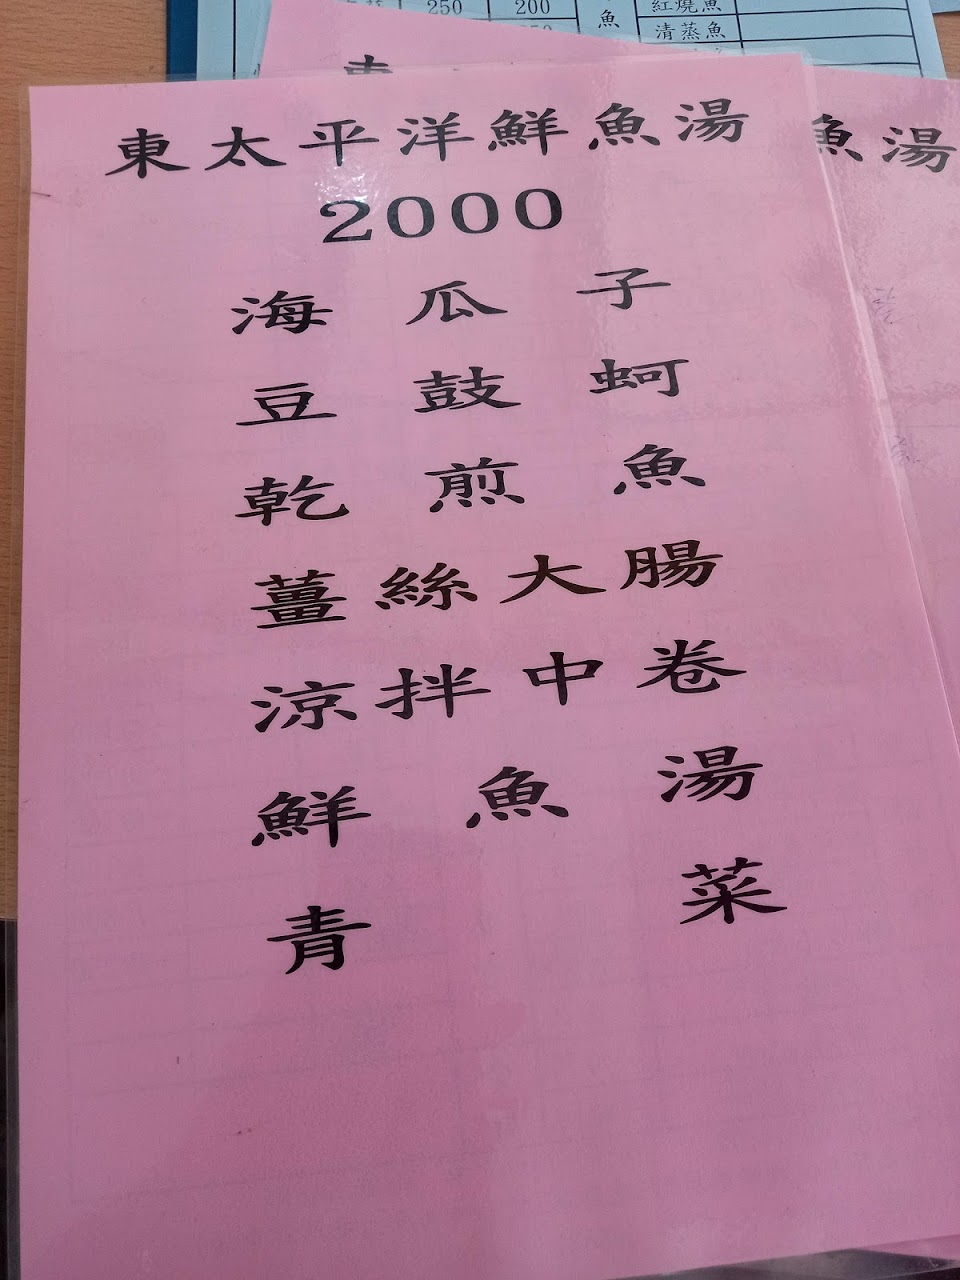 250 200 魚 紅燒魚
清蒸魚
東太平洋鮮魚湯
魚湯
2000
海瓜子
豆鼓蚵
乾煎魚
薑絲大腸
涼拌中卷
鮮魚湯
青菜